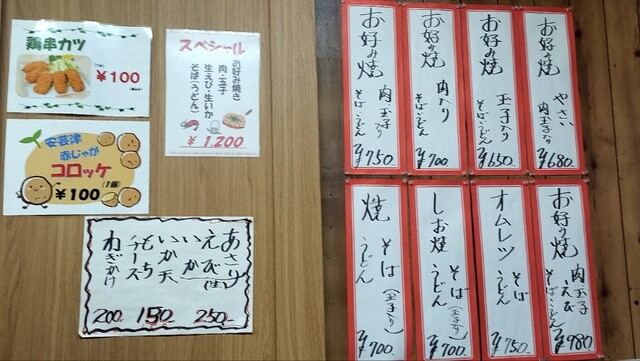 鶏串カツ
¥100
スペシャル
お好み焼き
肉・玉子
生えび・生いか
そば(うどん)
¥1,200
安芸津
赤じゃが
コロッケ
(1個)
¥100
あさり
えび
いか
(生)
いか天
もち
チーズ
ねぎかけ
250-
150
200
お好み焼
やさい
肉玉子入り
¥680
お好み焼
玉子入り
そば・うどん
¥650
お好み焼
肉入り
そば・うどん
¥700
お好み焼
肉・玉子入り
そば・うどん
¥750
お好み焼
肉玉子
えび
そば・うどん
¥980
オムレツ
そば
うどん
¥750
しお焼
そば(玉子入り)
うどん
¥700
焼
そば(玉子入り)
うどん
¥700